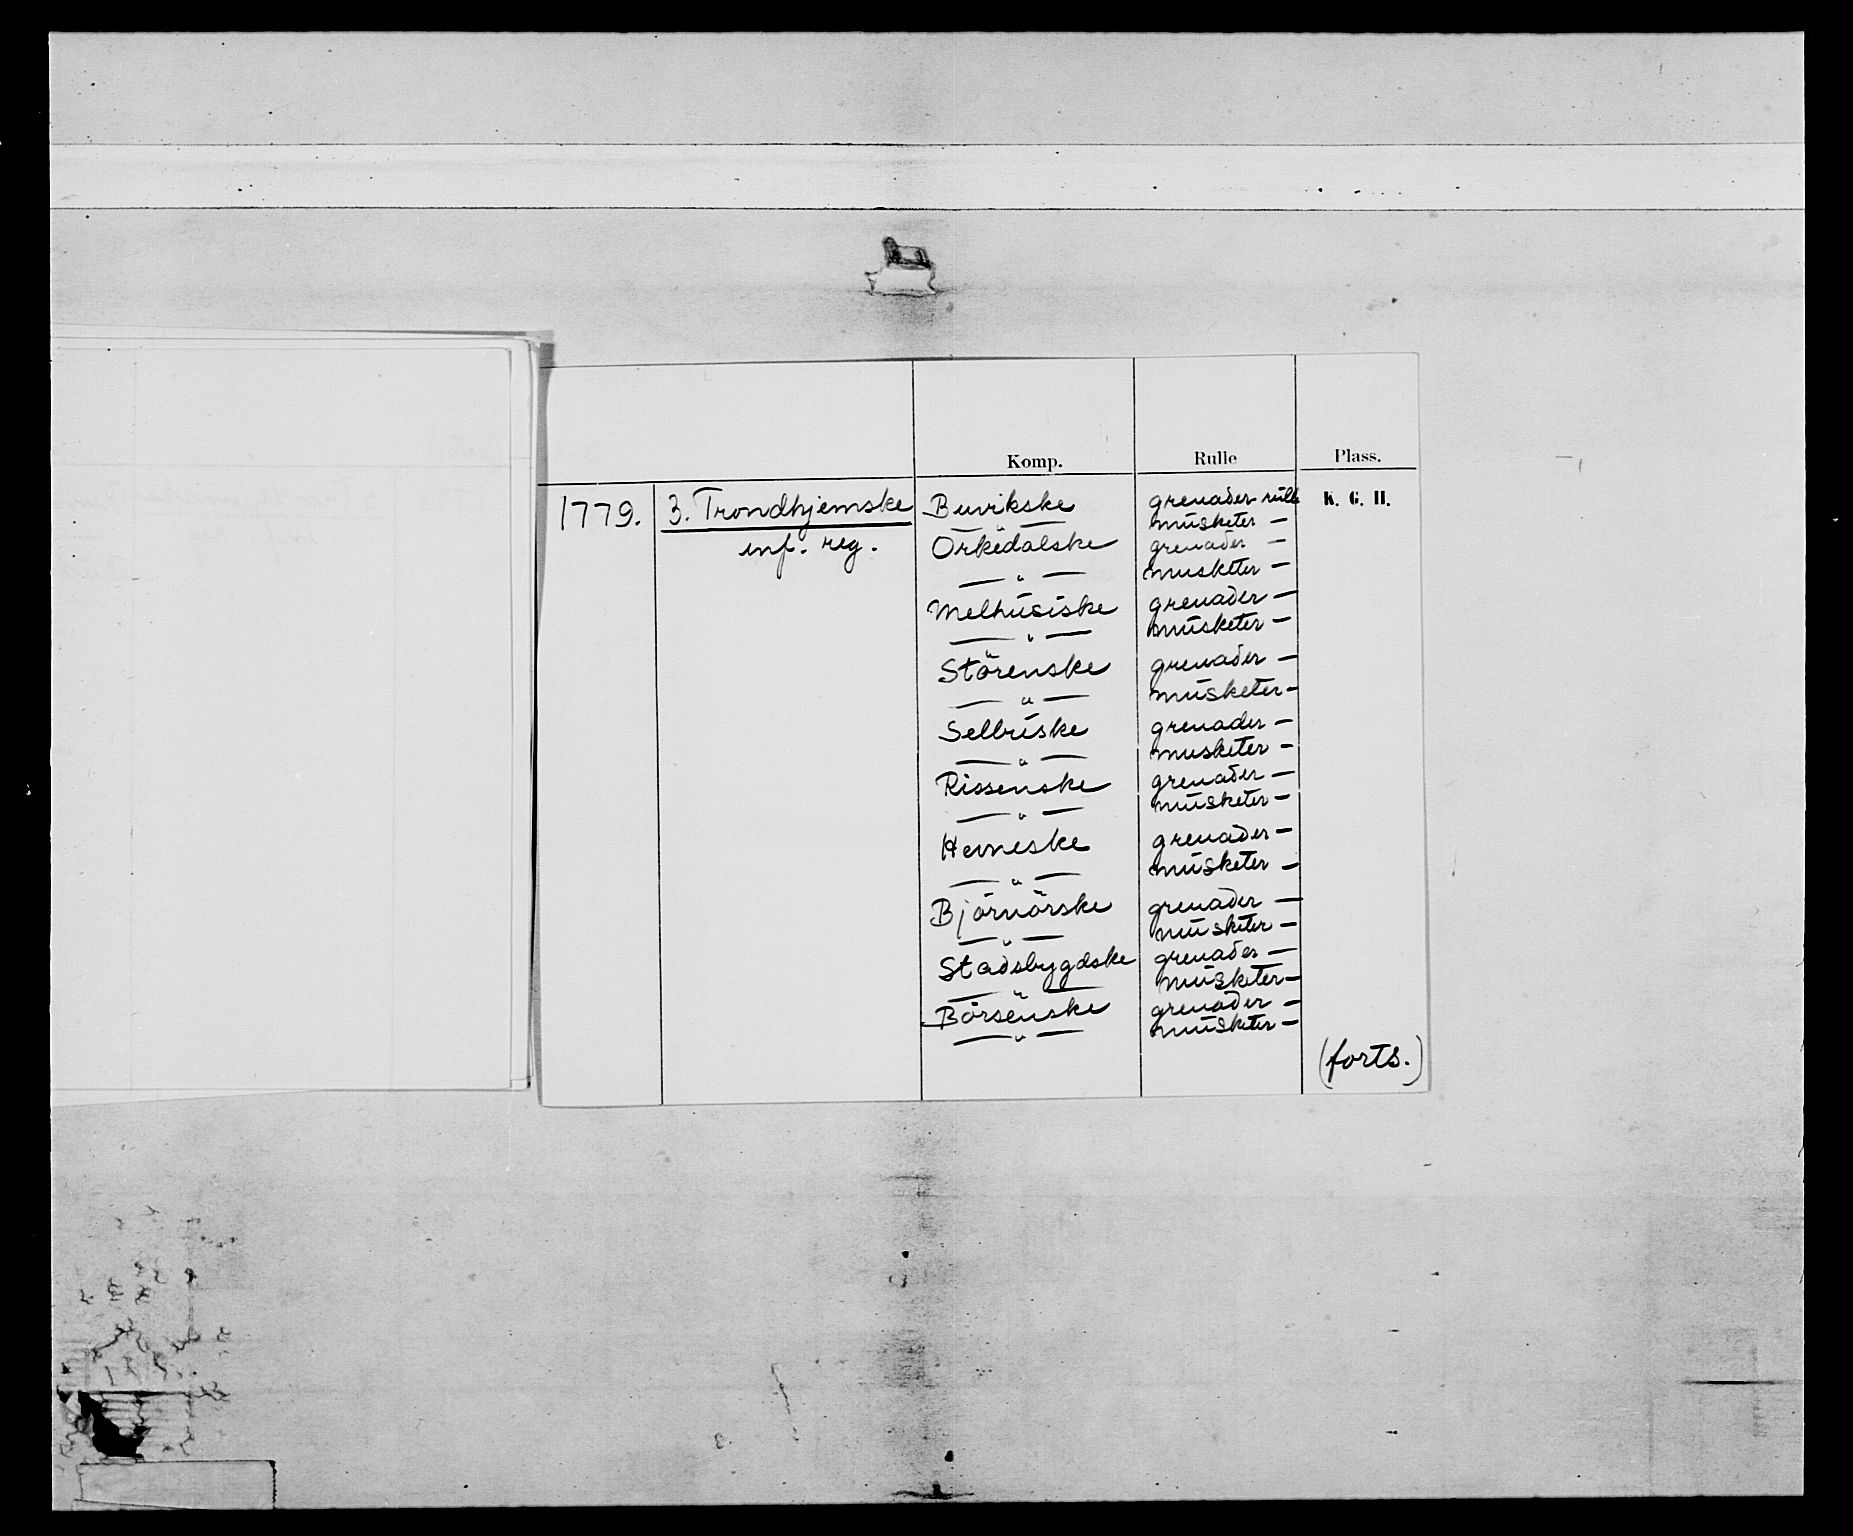 Komp. Rulle Plass.
1779. 3. Trondhjemske Buvikske grenader rulle K. G. H.
inf. reg. — " — musketer —
Örkedalske grenader —
— " — musketer —
Melhusiske grenader —
— " — musketer —
Störenske grenader —
— " — musketer —
Selbuske grenader —
— " — musketer —
Rissenske grenader —
— " — musketer —
Hevneske grenader —
— " — musketer —
Björnörske grenader —
— " — musketer —
Stadsbygdske grenader —
— " — musketer —
Börsenske grenader —
— " — musketer —
(forts.)